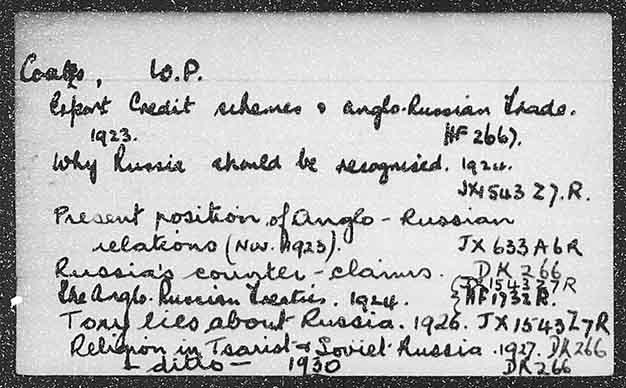 Coates, W.P.
Export Credit schemes & Anglo-Russian Trade.
1923. HF 2667.
Why Russia should be recognised. 1924.
JX1543 Z7.R.
Present position of Anglo-Russian
relations (Nov. 1923). JX 633 A6R
Russia's counter-claims. DK 266
JX1543 Z7R
The Anglo-Russian Treaties. 1924. HF 1932 R.
Tory lies about Russia. 1926. JX1543 Z7R
Religion in Tsarist & Soviet Russia. 1927. DK266
- ditto - 1930 DK266